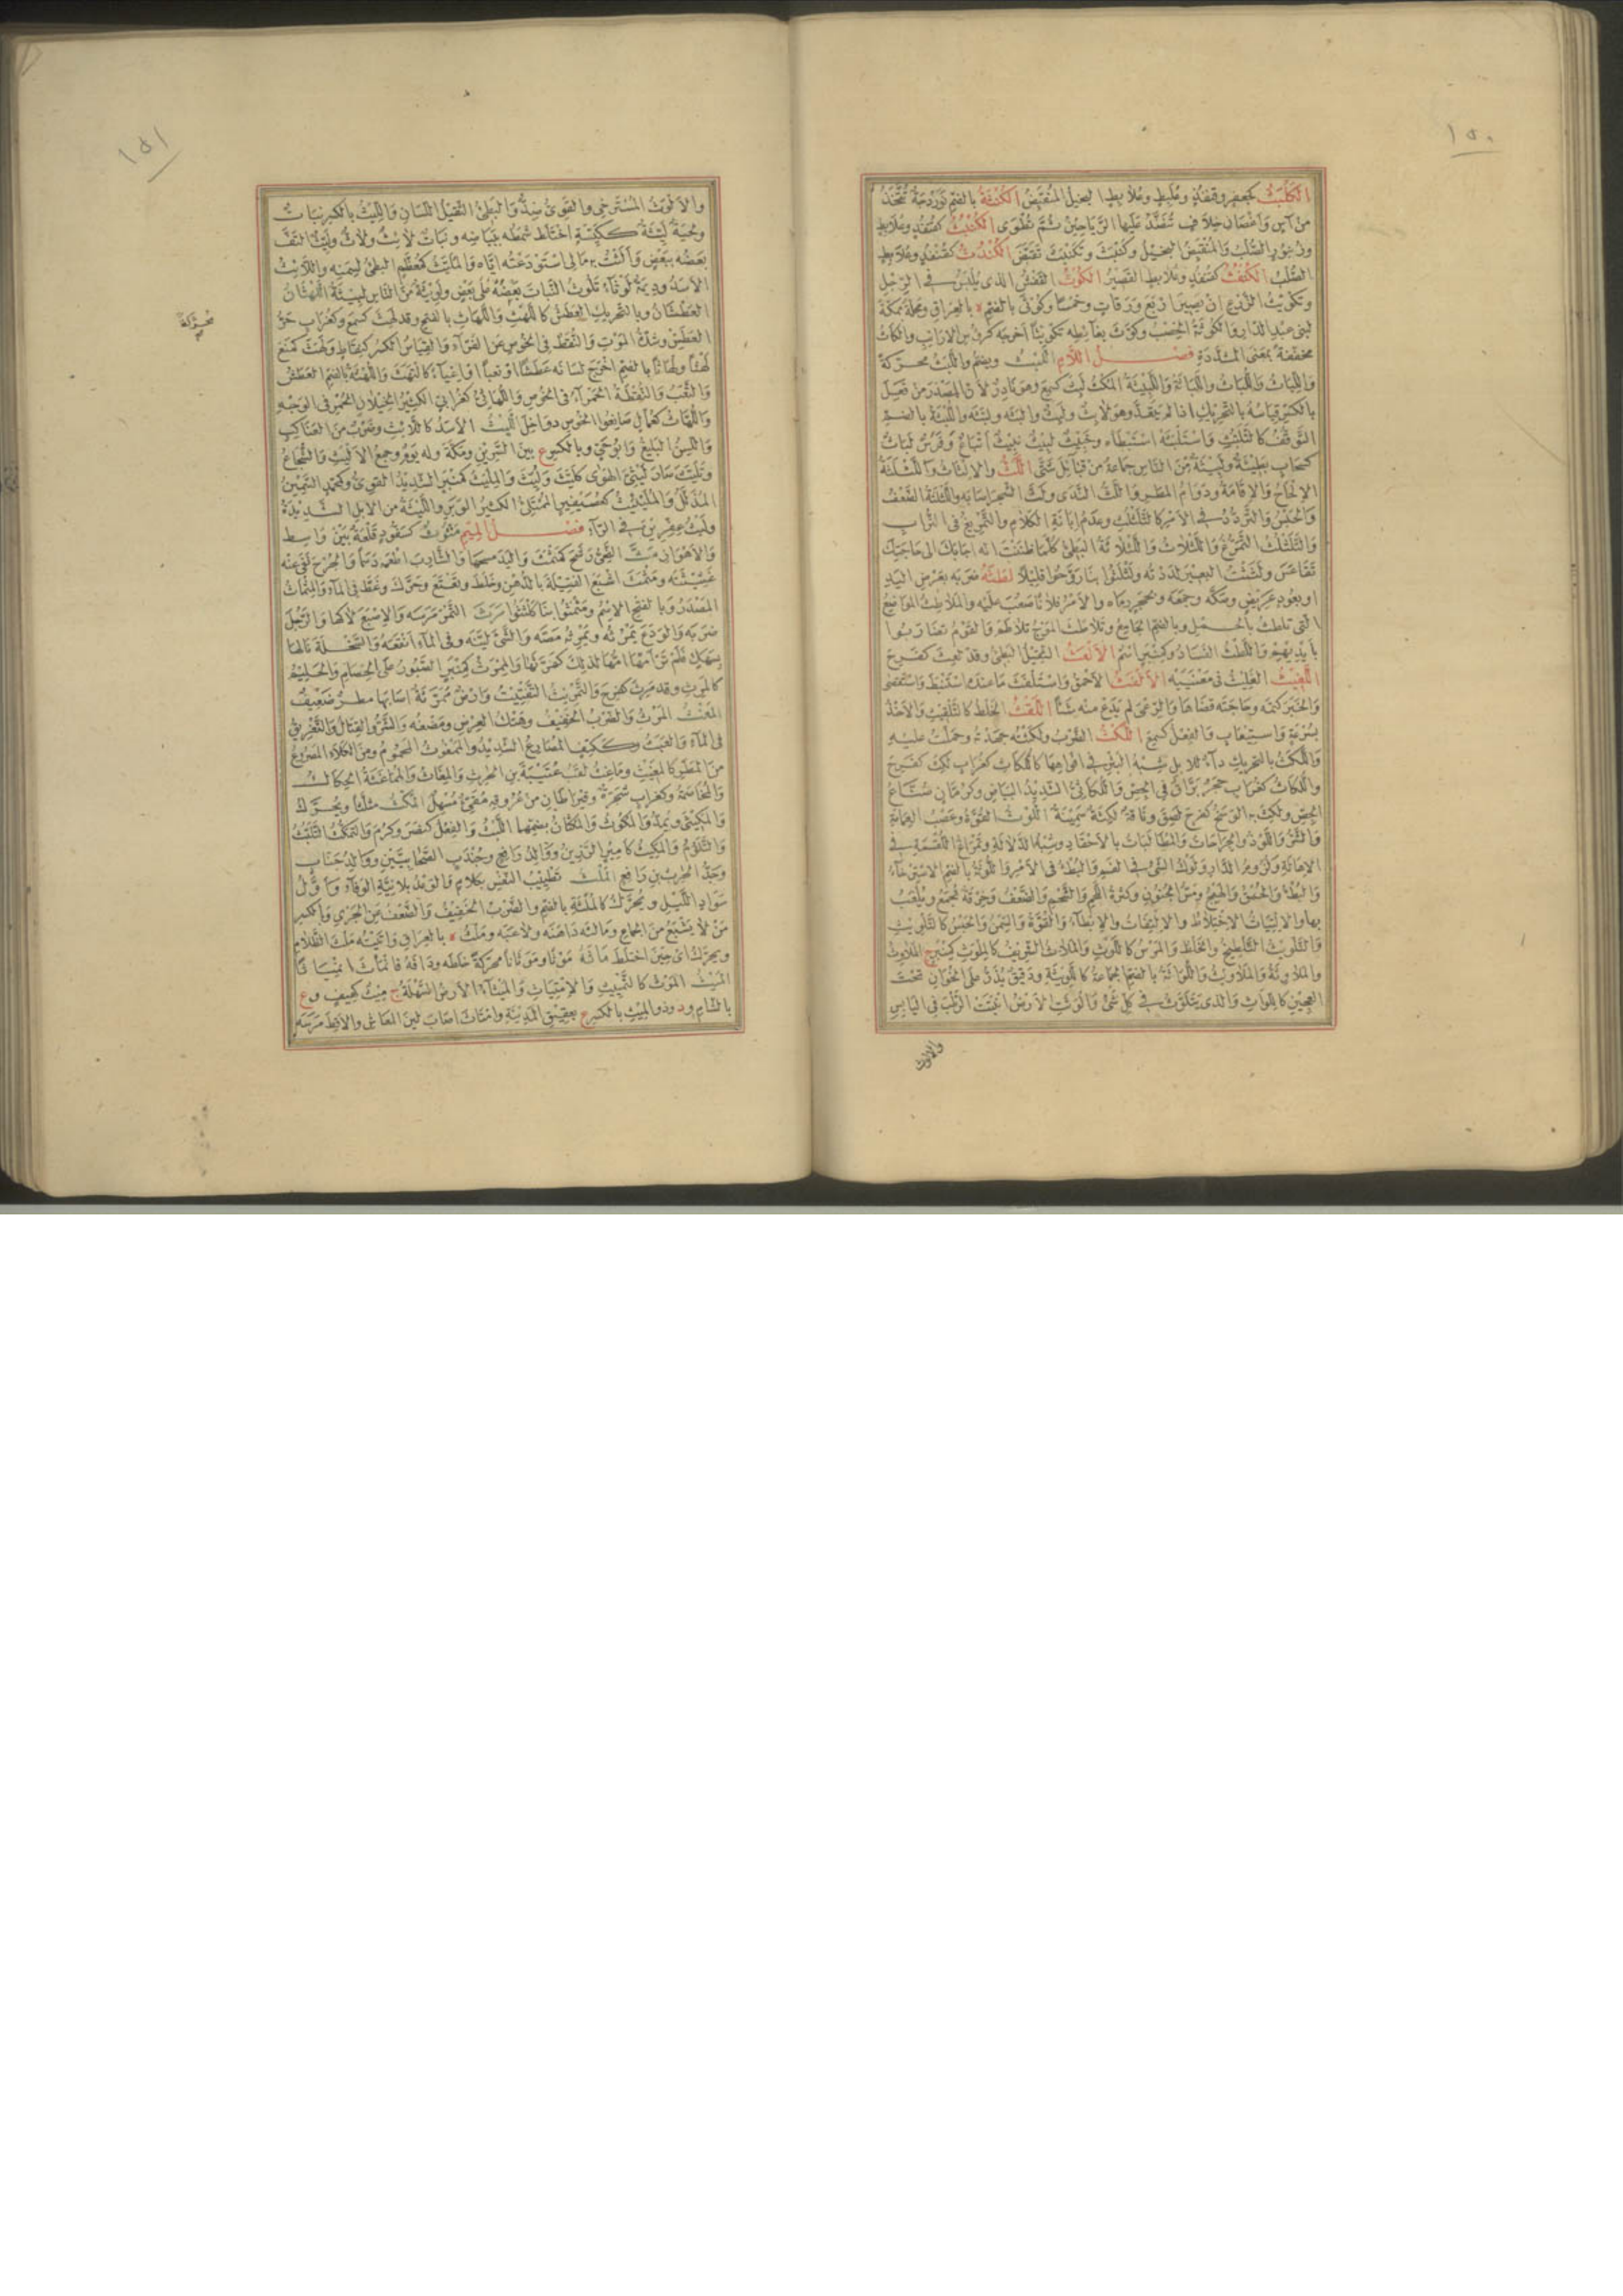 ١٥٠
الكَلْبَثُ كجعفرٍ وقنفذٍ وعُلَبِطٍ وعُلابِطٍ البخيلُ المنقبِضُ الكُنْثَةُ بالضم نَوَرْدَجَةٌ تُتَّخَذُ
من آسٍ وأغصانِ خِلافٍ تُنَضَّدُ عليها الرَّياحينُ ثم تُطْوَى الكُنْبُثُ كقنفذٍ وعُلابِطٍ
وزُنبورٍ الصُّلْبُ والمنقبِضُ البخيلُ وكَنْبَثَ وتَكَنْبَثَ تَقَبَّضَ الكُنْدُثُ كقنفذٍ وعُلابِطٍ
الصُّلْبُ الكُنْفُثُ كقنفذٍ وعُلابِطٍ القصيرُ الكَوْثُ القَفْشُ الذى يُلْبَسُ فى الرِّجْلِ
وتكويثُ الزَّرْعِ أن يصيرَ أربعَ ورقاتٍ وخمسًا وكُوثَى بالضم د بالعراقِ ومحلةٌ بمكةَ
لبنى عبدِ الدارِ والكُوثَةُ الخِصْبُ وكَوَّثَ بغائطِه تكويثًا أخرجه كرؤُسِ الأرانبِ والكاثُ
مخففةً بمعنى المشددةِ فصل اللام اللَّبْثُ ويضم واللَّبَثُ محركةً
واللِّبَاثُ واللُّبَاثُ واللَّبَاثَةُ واللَّبِيثَةُ المُكْثُ لَبِثَ كسمعَ وهو نادرٌ لأن المصدرَ من فَعِلَ
بالكسرِ قياسُه بالتحريكِ إذا لم يتعدَّ وهو لابِثٌ ولَبِثٌ وألبثَه ولبَّثَه واللُّبْثَةُ بالضم
التَّوَقُّفُ كالتَّلَبُّثِ واستلبثَه استبطأه وخبيثٌ لبيثٌ نبيثٌ إتباعٌ وقَوْسٌ لَبَاثٌ
كسحابٍ بطيئةٌ ولَبِيثَةٌ من الناسِ جماعةٌ من قبائلَ شتى اللَّثُّ والإلثاثُ واللَّثْلَثَةُ
الإلحاحُ والإقامةُ ودوامُ المطرِ واللَّثُّ النَّدَى ولَثَّ الشجرَ أصابه واللَّثْلَثَةُ الضعفُ
والحبسُ والتردُّدُ فى الأمرِ كالتَّلَثْلُثِ وعدمُ إبانةِ الكلامِ والتمريغُ فى الترابِ
والتَّلَثْلُثُ التمرُّغُ واللَّثْلاثُ واللَّثْلاثَةُ البطىءُ كلما ظننتَ أنه أجابك إلى حاجتِك
تقاعسَ ولَثْلَثْتُ البعيرَ لَدَدْتُه ولَثْلِثُوا بنا روِّحوا قليلاً لَطَثَهُ ضربه بعرضِ اليدِ
أو بعودٍ عريضٍ وصكَّه وجمعَه وبحجرٍ رماه والأمرُ فلانًا صعُبَ عليه والمَلاطِثُ المواضعُ
التى تُلْطَثُ بالحِمْلِ وبالضم الجامعُ وتلاطَثَ الموجُ تلاطمَ والقومُ تضاربوا
بأيديهم واللَّطْثُ الفسادُ وكمنبرٍ اسمٌ الأَلْعَثُ الثقيلُ البطىءُ وقد لَعِثَ كفرحَ
اللَّغِيثُ الغَلِيثُ فى معنييه الأَلْفَثُ الأحمقُ واستلفثَ ما عندك استنبطَ واستقصى
والخبرَ كتمه وحاجتَه قضاها والرِّعْىَ لم يدعْ منه شيئًا اللَّقْثُ الخلطُ كالتلقيثِ والأخذُ
بسرعةٍ واستيعابٍ والفعلُ كسمعَ اللَّكْثُ الضربُ ولكَثَه جهدَه وحملَ عليه
واللَّكَثُ بالتحريكِ داءٌ للإبلِ شِبْهُ البَثْرِ فى أفواهها كاللُّكاثِ كغرابٍ لكِثَ كفرحَ
واللُّكَاثُ كغرابٍ حجرٌ برَّاقٌ فى الجصِّ واللُّكاثِىُّ الشديدُ البياضِ وكرُمَّانٍ صُنَّاعُ
الجصِّ ولَكِثَ به الوسخُ كفرحَ لَصِقَ وناقةٌ لَكِثَةٌ سمينةٌ اللَّوْثُ القوةُ وعصبُ العمامةِ
والشَّرُّ واللَّوْذُ والجراحاتُ والمطالباتُ بالأحقادِ وشبهُ الدلالةِ وتمراغُ اللقمةِ فى
الإهالةِ ولزومُ الدارِ ولَوْكُ الشىءِ فى الفمِ والبطءُ فى الأمرِ واللُّوثَةُ بالضم الاسترخاءُ
والبطءُ والحمقُ والهيجُ ومسُّ الجنونِ وكثرةُ اللحمِ والشحمِ والضعفُ وخرقةٌ تُجمعُ ويُلعبُ
بها والالتياثُ الاختلاطُ والالتفاتُ والإبطاءُ والقوةُ والسِّمَنُ والحبسُ كالتلويثِ
والتلويثُ التلطيخُ والخلطُ والمَرْسُ كاللوثِ والملاثُ الشريفُ كالمِلْوَثِ كمنبرٍ ج الملاوثُ
والملاوثةُ والملاويثُ واللُّوَاثَةُ بالضم الجماعةُ كاللَّوِيثَةِ ودقيقٌ يُذَرُّ على الخوانِ تحتَ
العجينِ كاللُّوَاثِ والذى يتلوَّثُ فى كلِّ شىءٍ وألوَثَتِ الأرضُ أنبتت الرُّطْبَ فى اليابسِ
والالوث
١٥١
والأَلْوَثُ المسترخى والقوىُّ ضِدٌّ والبطىءُ الثقيلُ اللسانِ واللِّيثُ بالكسرِ نباتٌ
ولحيةٌ لَيِّثَةٌ ككَيِّسَةٍ اختلط شَمَطُه ببياضِه ونباتٌ لائِثٌ ولاثٌ ولَيِّثٌ التفَّ
بعضُه ببعضٍ وأَلَثْتُ به مالى استودعتُه إياه والمُلَيَّثُ كمعظَّمٍ البطىءُ لسِمَنِه واللائِثُ
الأسدُ وديمةٌ لَوْثاءُ تَلُوثُ النباتَ بعضَه على بعضٍ ولَوِيثَةٌ من الناسِ لَبِيثَةٌ اللَّهْثانُ
العطشانُ وبالتحريكِ العطشُ كاللَّهَثِ واللَّهَاثِ بالفتحِ وقد لَهِثَ كسمعَ وكغرابٍ حرُّ
محركة صح
العطشِ وشدةُ الموتِ والنُّقَطُ فى الخُوصِ عن الفراءِ والقياسُ الكسرُ كنِقَاطٍ ولهَثَ كمنعَ
لَهْثًا ولُهاثًا بالضم أخرجَ لسانَه عطشًا أو تعبًا أو إعياءً كالتهثَ واللُّهْثَةُ بالضم العطشُ
والتعبُ والنُّقْطَةُ الحمراءُ فى الخُوصِ واللُّهَاثِىُّ كغرابىٍّ الكثيرُ الخِيلانِ الحُمْرِ فى الوجهِ
واللُّهَّاثُ كعُمَّالٍ صانعو الخُوصِ دواخِلَ اللَّيْثُ الأسدُ كاللائِثِ وضربٌ من العناكبِ
واللَّسِنُ البليغُ وأبو حىٍّ وبالكسرِ ع بين السِّرَّيْنِ ومكةَ وله يومٌ وجمعُ الألْيَثِ وللشجاعِ
وتليَّثَ صار لَيْثِىَّ الهوى كليَّثَ ولُيِّثَ والمِلْيَثُ كمنبرٍ الشديدُ القوىُّ وكمحمدٍ السمينُ
المُذَلَّلُ والمُلَيْلِيثُ كعُصَيْفيرٍ الممتلئُ الكثيرُ الوبرِ واللَّيْثَةُ من الإبلِ الشديدةُ
ولَيْثُ عِفِرِّينَ فى الراءِ فصل الميم مَتُّوثُ كسَفُّودٍ قلعةٌ بين واسط
والأهوازِ مثَّ الزِّقُّ رشحَ كمثمثَ واليدَ مسحَها والشاربَ أطعمه دسمًا والجرحَ نفى عنه
غَثِيثَتَه ومثمثَ أشبعَ الفتيلةَ بالدهنِ وخلطَ وتعتعَ وحرَّكَ وغطَّ فى الماءِ والمِثْمَاثُ
المصدرُ وبالفتحِ الاسمُ ومَثْمِثُوا بنا كلَثْلِثُوا مَرَثَ التمرَ مَرَسَه والإصبعَ لاكها والرجلَ
ضربه والوَدَعَ يمرُثُه ويمرِثُه مصَّه والشىءَ ليَّنه وفى الماءِ أنقعَه والسخلةَ نالها
بسَهَكٍ فلم تَرْأَمْها أمُّها لذلك كمرَّثها والمِمْرَثُ كمنبرٍ الصبورُ على الخصامِ والحليمُ
كالمَرِثِ وقد مَرِثَ كفرحَ والتمريثُ التفتيتُ وأرضٌ ممرَّثَةٌ أصابها مطرٌ ضعيفٌ
المَغْثُ المَرْثُ والضربُ الخفيفُ وهتكُ العِرضِ ومضغُه والشرُّ والقتالُ والتغريقُ
فى الماءِ والعبثُ وككتفٍ المصارعُ الشديدُ والممغوثُ المحمومُ ومن الكلإِ المصروعُ
من المطرِ كالمغيثِ وماغِثٌ لقبُ عُتَيْبَةَ بنِ الحرثِ والمِغاثُ والمماغثةُ الحِكاكُ
والمخاصمةُ وكغرابٍ شجرةٌ وقيراطانِ من عروقِه مُقَيِّئٌ مُسْهِلٌ المُكْثُ مثلثًا ويحرَّكُ
والمِكِّيثَى ويمدُّ والمُكُوثُ والمُكْثانُ بضمِّهما اللُّبْثُ والفعلُ كنصرَ وكرُمَ والتمكُّثُ التلبُّثُ
والتلوُّمُ والمَكِيثُ كأميرٍ الرزينُ ووالدُ رافعٍ وجُنْدَبٍ الصحابيَّينِ ووالدُ جنابٍ
وجدُّ الحُرَيْثِ بنِ رافعٍ المَلْثُ تطييبُ النفسِ بكلامٍ والوعدُ بلا نيَّةِ الوفاءِ وأوَّلُ
سوادِ الليلِ ويحرَّكُ كالمُلْثَةِ بالضم والضربُ الخفيفُ والضعفُ عن الجَرْىِ وبالكسرِ
من لا يشبعُ من الجماعِ ومالثَه داهنَه ولاعبَه ومَلْثٌ د بالعراقِ وأتيتُه مَلَثَ الظلامِ
ويحرَّكُ أى حينَ اختلطَ ماثَهُ مَوْثًا ومَوَثانًا محركةً خلطَه ودافَه فانماثَ انمياثًا
المَيْثُ المَوْثُ كالتمييثِ والامتياثِ والمَيْثاءُ الأرضُ السهلةُ ج مِيثٌ كهِيفٍ وع
بالشامِ ود وذو المِيثِ بالكسرِ ع بعقيقِ المدينةِ وامتاثَ أصاب لينَ المعاشِ والأقطَ مرسَه